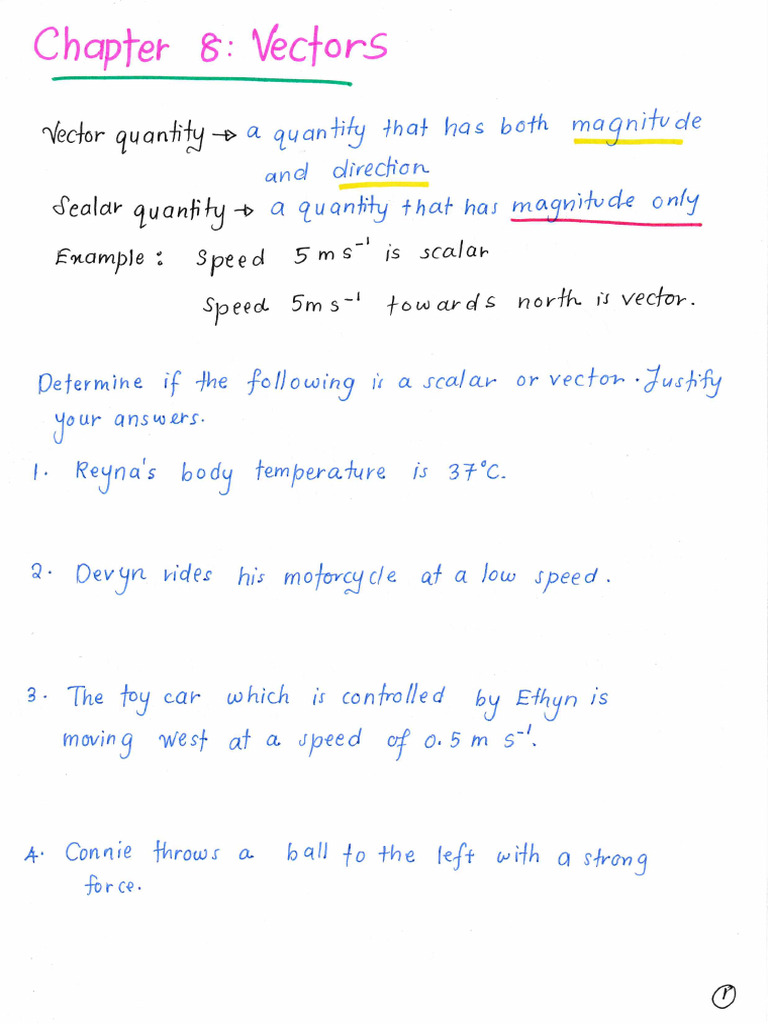 Chapter 8: Vectors
Vector quantity → a quantity that has both magnitude
and direction
Scalar quantity → a quantity that has magnitude only
Example: Speed 5 m s⁻¹ is scalar
Speed 5 m s⁻¹ towards north is vector.
Determine if the following is a scalar or vector. Justify
your answers.
1. Reyna's body temperature is 37°C.
2. Devyn rides his motorcycle at a low speed.
3. The toy car which is controlled by Ethyn is
moving west at a speed of 0.5 m s⁻¹.
4. Connie throws a ball to the left with a strong
force.
1